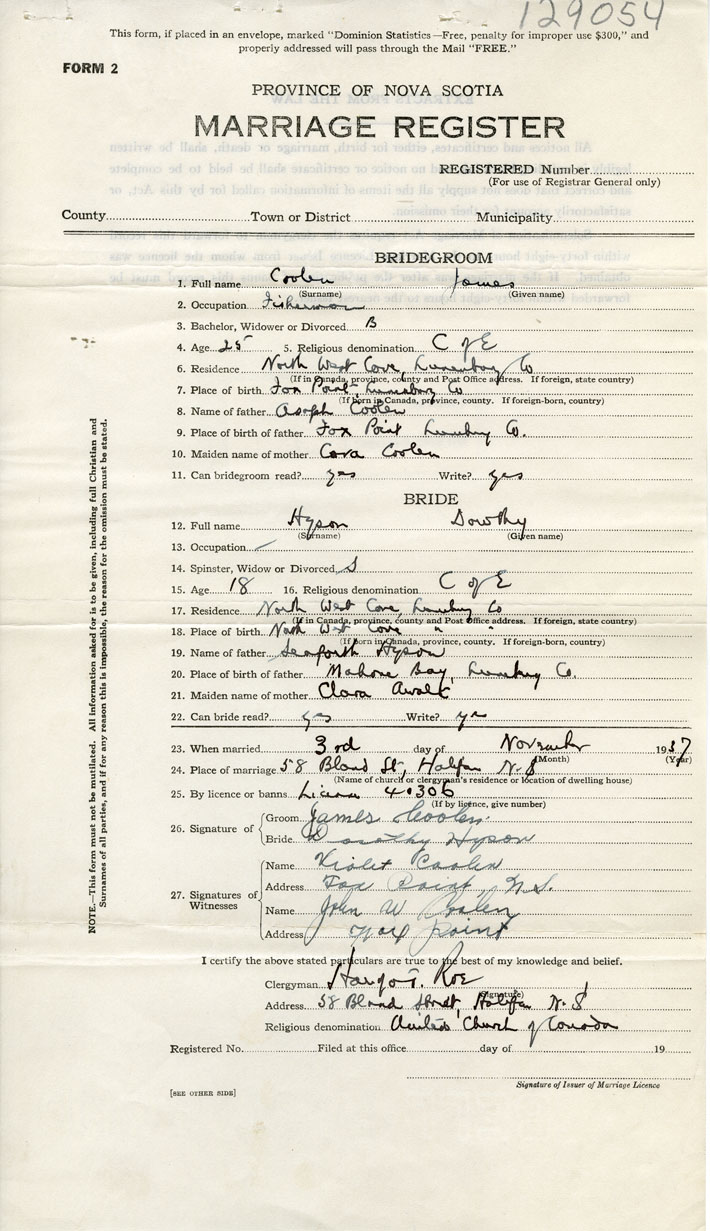 129054
This form, if placed in an envelope, marked "Dominion Statistics—Free, penalty for improper use $300," and
properly addressed will pass through the Mail "FREE."
FORM 2
PROVINCE OF NOVA SCOTIA
MARRIAGE REGISTER
REGISTERED Number
(For use of Registrar General only)
County Town or District Municipality
BRIDEGROOM
1. Full name Coolen James
(Surname) (Given name)
2. Occupation Fisherman
3. Bachelor, Widower or Divorced B
4. Age 25 5. Religious denomination C of E
6. Residence North West Cove, Lunenburg Co
(If in Canada, province, county and Post Office address. If foreign, state country)
7. Place of birth Fox Point, Lunenburg Co
(If born in Canada, province, county. If foreign-born, country)
8. Name of father Coolen
9. Place of birth of father Fox Point Lunenburg Co.
10. Maiden name of mother Cora Coolen
11. Can bridegroom read? yes Write? yes
BRIDE
12. Full name Hyson Dorothy
(Surname) (Given name)
13. Occupation
14. Spinster, Widow or Divorced S
15. Age 18 16. Religious denomination C of E
17. Residence North West Cove, Lunenburg Co
(If in Canada, province, county and Post Office address. If foreign, state country)
18. Place of birth North West Cove " "
(If born in Canada, province, county. If foreign-born, country)
19. Name of father Seaforth Hyson
20. Place of birth of father Mahone Bay, Lunenburg Co.
21. Maiden name of mother Clara Awalt
22. Can bride read? yes Write? yes
23. When married 3rd day of November 1937
(Month) (Year)
24. Place of marriage 58 Bland St, Halifax N.S
(Name of church or clergyman's residence or location of dwelling house)
25. By licence or banns Licence 40306
(If by licence, give number)
26. Signature of Groom James Coolen.
Bride Dorothy Hyson
27. Signatures of Witnesses
Name Violet Coolen
Address Fox Point, N.S.
Name John W Coolen
Address Fox Point
I certify the above stated particulars are true to the best of my knowledge and belief.
Clergyman Roe
(Signature)
Address 58 Bland Street, Halifax N.S
Religious denomination United Church of Canada
Registered No. Filed at this office day of 19
Signature of Issuer of Marriage Licence
[SEE OTHER SIDE]
NOTE.—This form must not be mutilated. All information asked for is to be given, including full Christian and
Surnames of all parties, and if for any reason this is impossible, the reason for the omission must be stated.